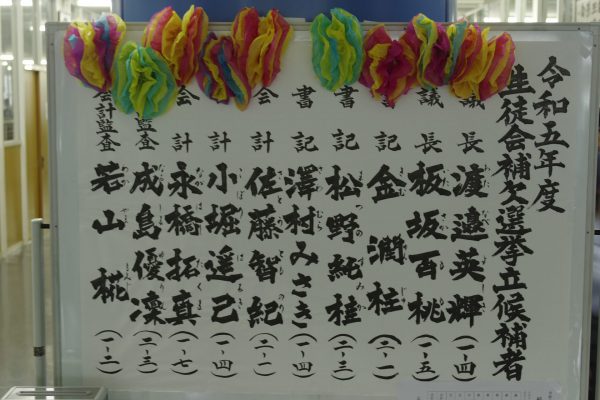 令和五年度
生徒会補欠選挙立候補者
議長 渡邉英輝 (一・四)
議長 板坂百桃 (一・五)
書記 金潤柱 (二・一)
書記 松野純桂 (二・三)
書記 澤村みさき (一・四)
会計 佐藤智紀 (二・一)
会計 小堀遥己 (一・四)
会計 永橋拓真 (一・七)
監査 成島優凜 (二・三)
会計監査 若山椛 (一・二)